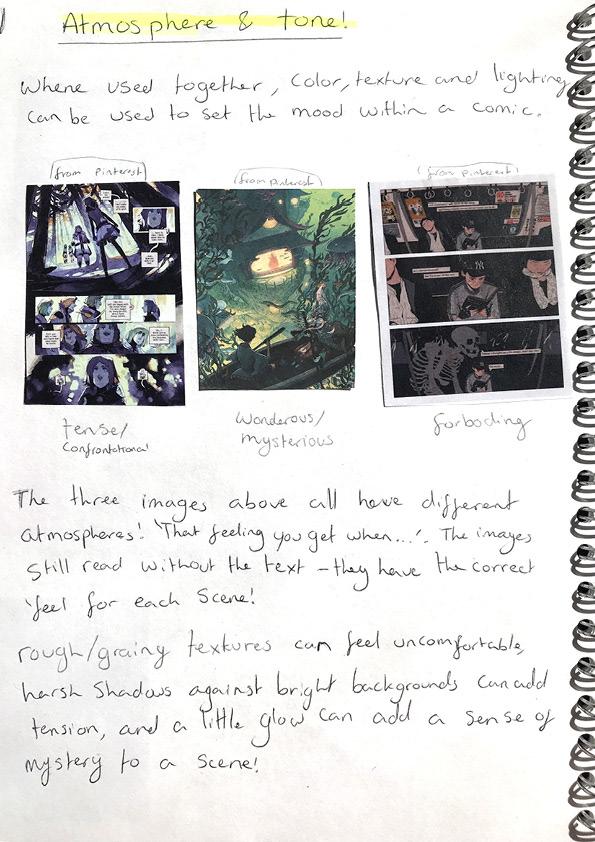 Atmosphere & tone!
Where used together, Color, texture and lighting
can be used to set the mood within a comic.
(from pinterest)
(from pinterest)
(from pinterest)
tense/
confrontational
Wonderous/
mysterious
forboding
The three images above all have different
atmospheres! 'That feeling you get when...'. The images
still read without the text - they have the correct
'feel for each scene!
rough/grainy textures can feel uncomfortable,
harsh shadows against bright backgrounds can add
tension, and a little glow can add a sense of
mystery to a scene!